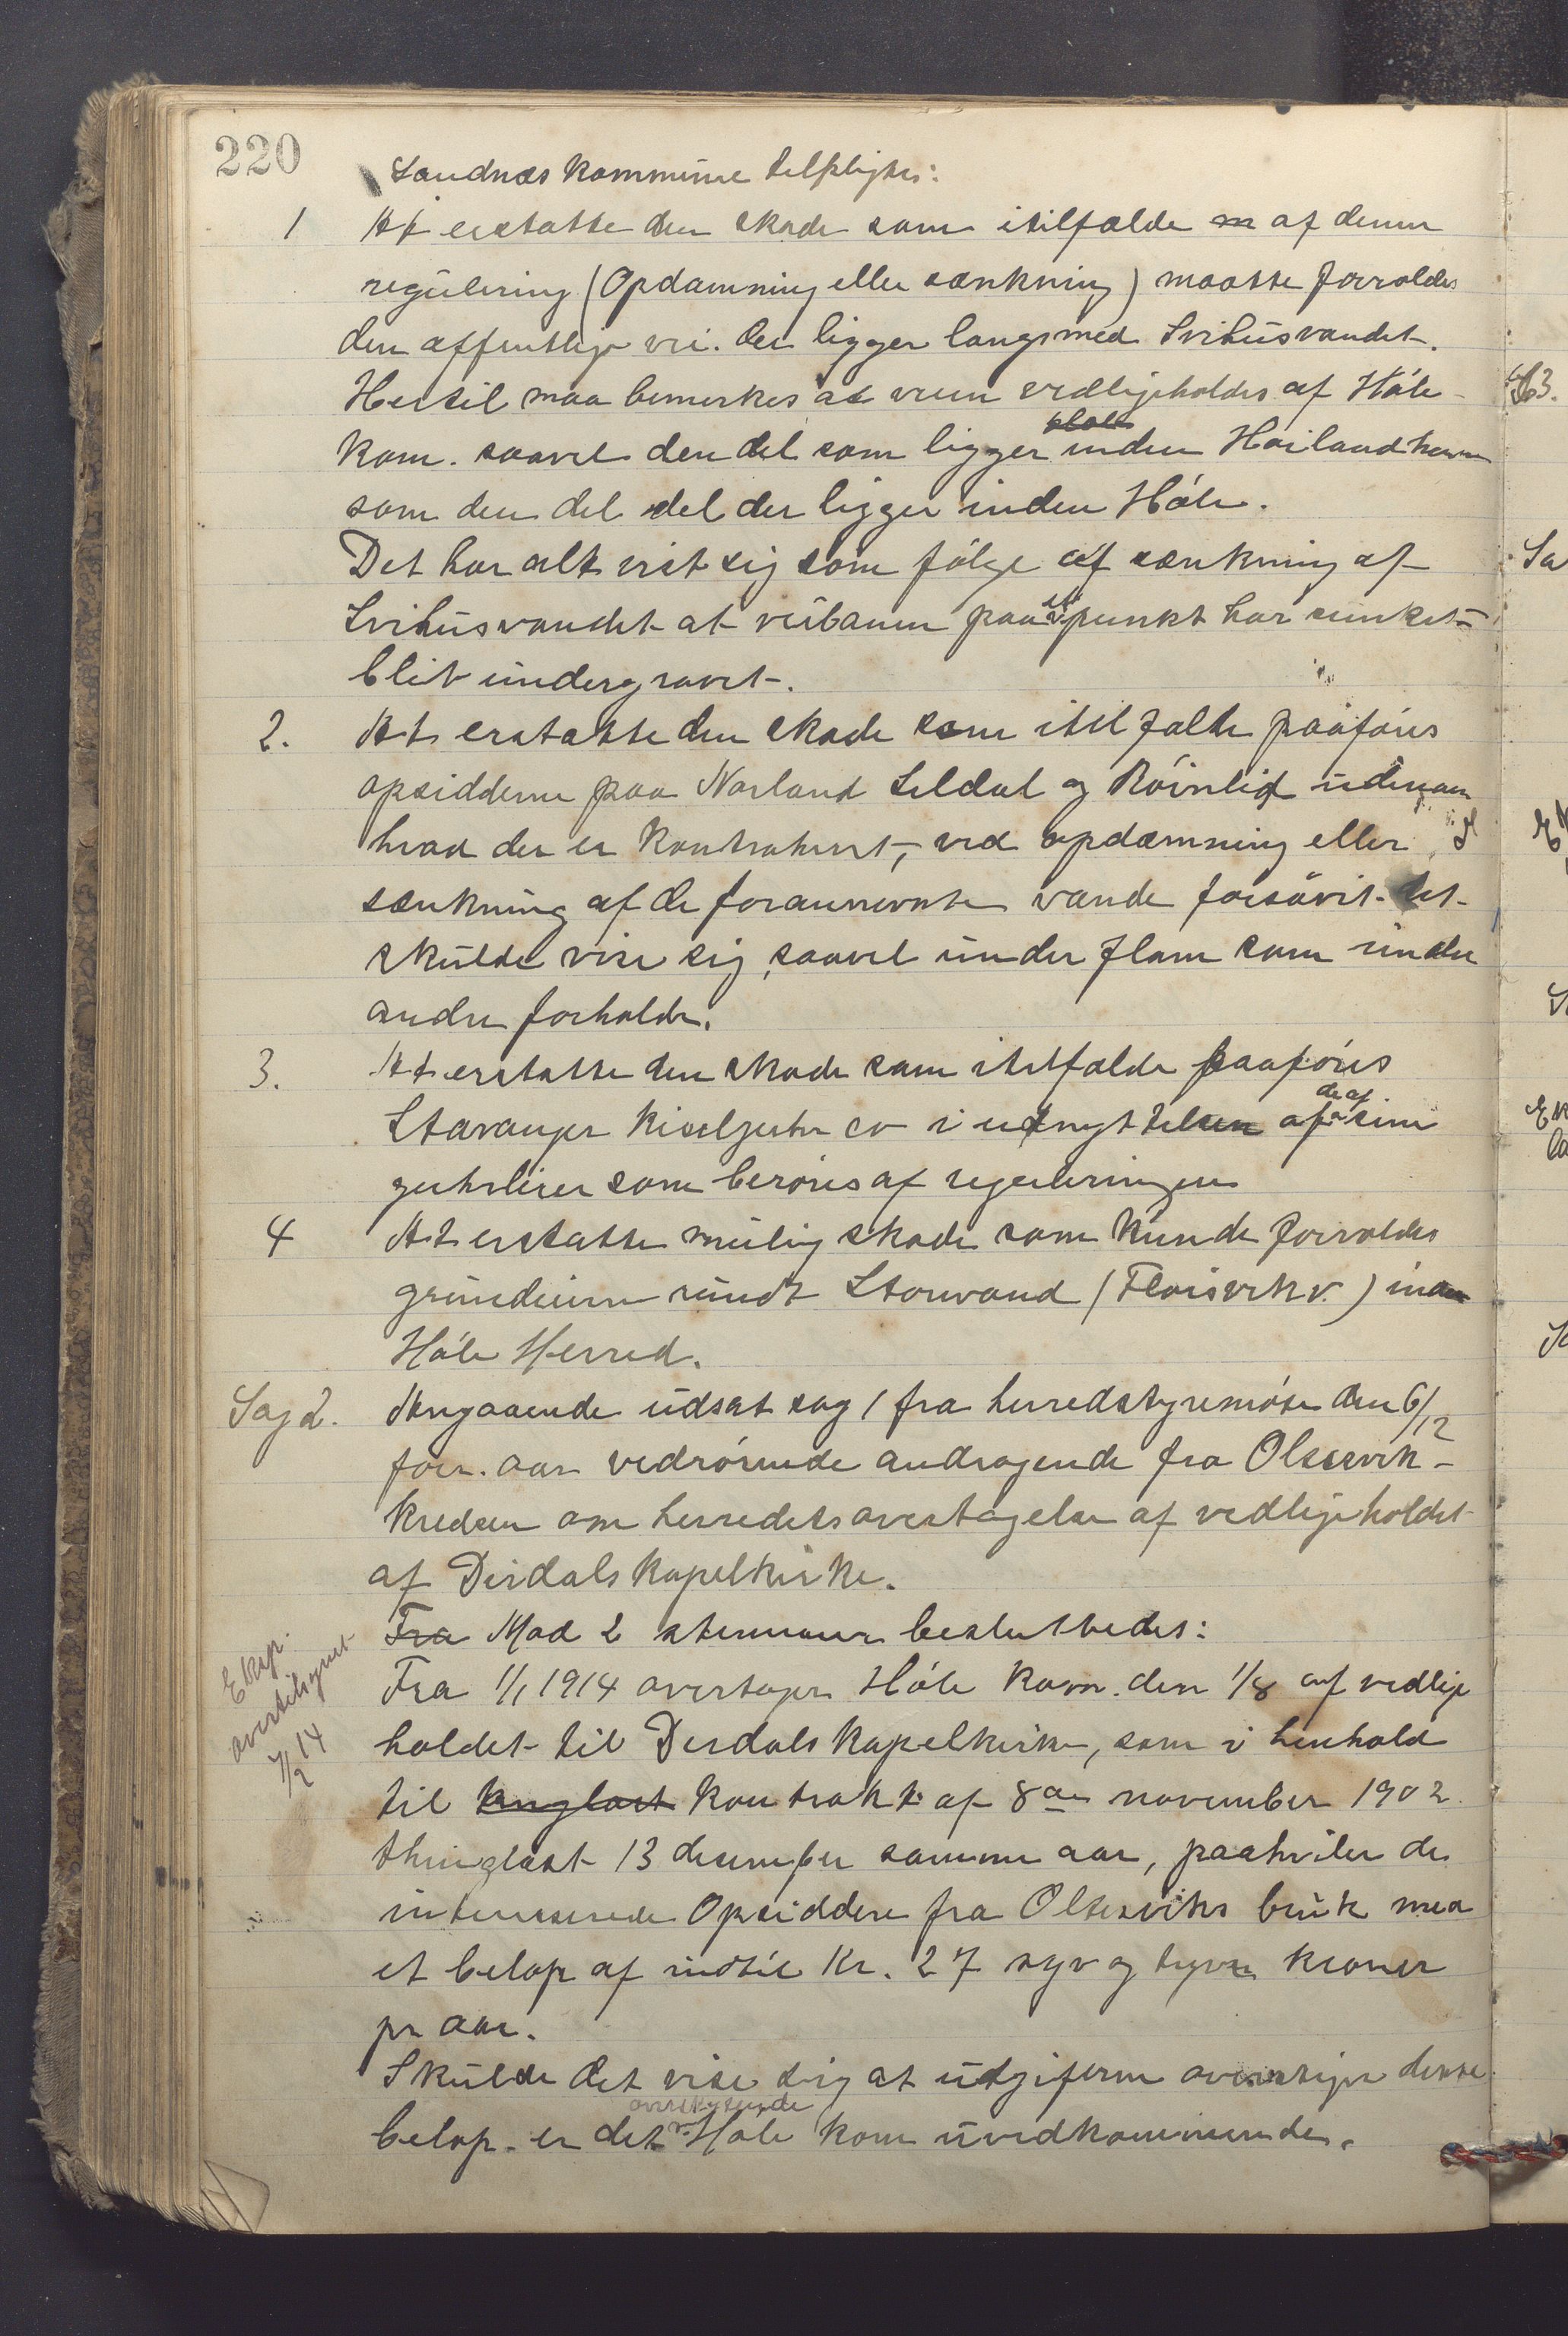 220
Sandnæs kommune tilpligtes:
1 At erstatte den skade som itilfælde m af denne
regulering (Opdæmning eller sænkning) maatte forvoldes
den offentlige vei. der ligger langs med Svihusvandet.
Hertil maa bemerkes at veien vedligeholdes af Høle
kom. saavel den del som ligger inden Høiland herred
som den del del der ligger inden Høle.
Det har alt vist sig som følge af sænkning af
Svihusvandet at veibanen paa et punkt har sunket -
blit undergravet.
2. At erstatte den skade som itilfælde paaføres
opsidderne paa Norland Seldal og Röinlid udenom
hvad der er kontrahert, ved opdæmning eller
sænkning af de forannevnte vande forsåvit det
skulde vise sig, saavel under flom som under
andre forholde.
3. At erstatte den skade som itilfælde paaføres
Stavanger Kiselguhr co i udnyttelsen af de af sine
guhrleier som berøres af reguleringen
4 At erstatte mulig skade som kunde forvoldes
grundeierne rundt Storvand (Floisvikv.) inden
Høle Herred.
Sag 2. Angaaende udsat sag 1 fra herredstyremøte den 6/12
forr. aar vedrørende andragende fra Oltesvik-
kredsen om herredets overtagelse af vedligeholdet
af Dirdals kapelkirke.
Fra Mod 2 stemmer besluttedes:
Eksp. overtilsynet 7/2 14
Fra 1/1 1914 overtager Høle kom. den 1/8 af vedlige
holdet til Dirdals kapelkirke, som i henhold
til kontrakt af 8de november 1902
thinglæst 13 desember samme aar, paahviler de
interesserede Opsiddere fra Oltesviks bruk med
et beløp af indtil Kr. 27 syv og tyve kroner
pr aar.
Skulde det vise sig at udgifterne overstiger dette
beløp. er det overskytende Høle kom uvedkommende.